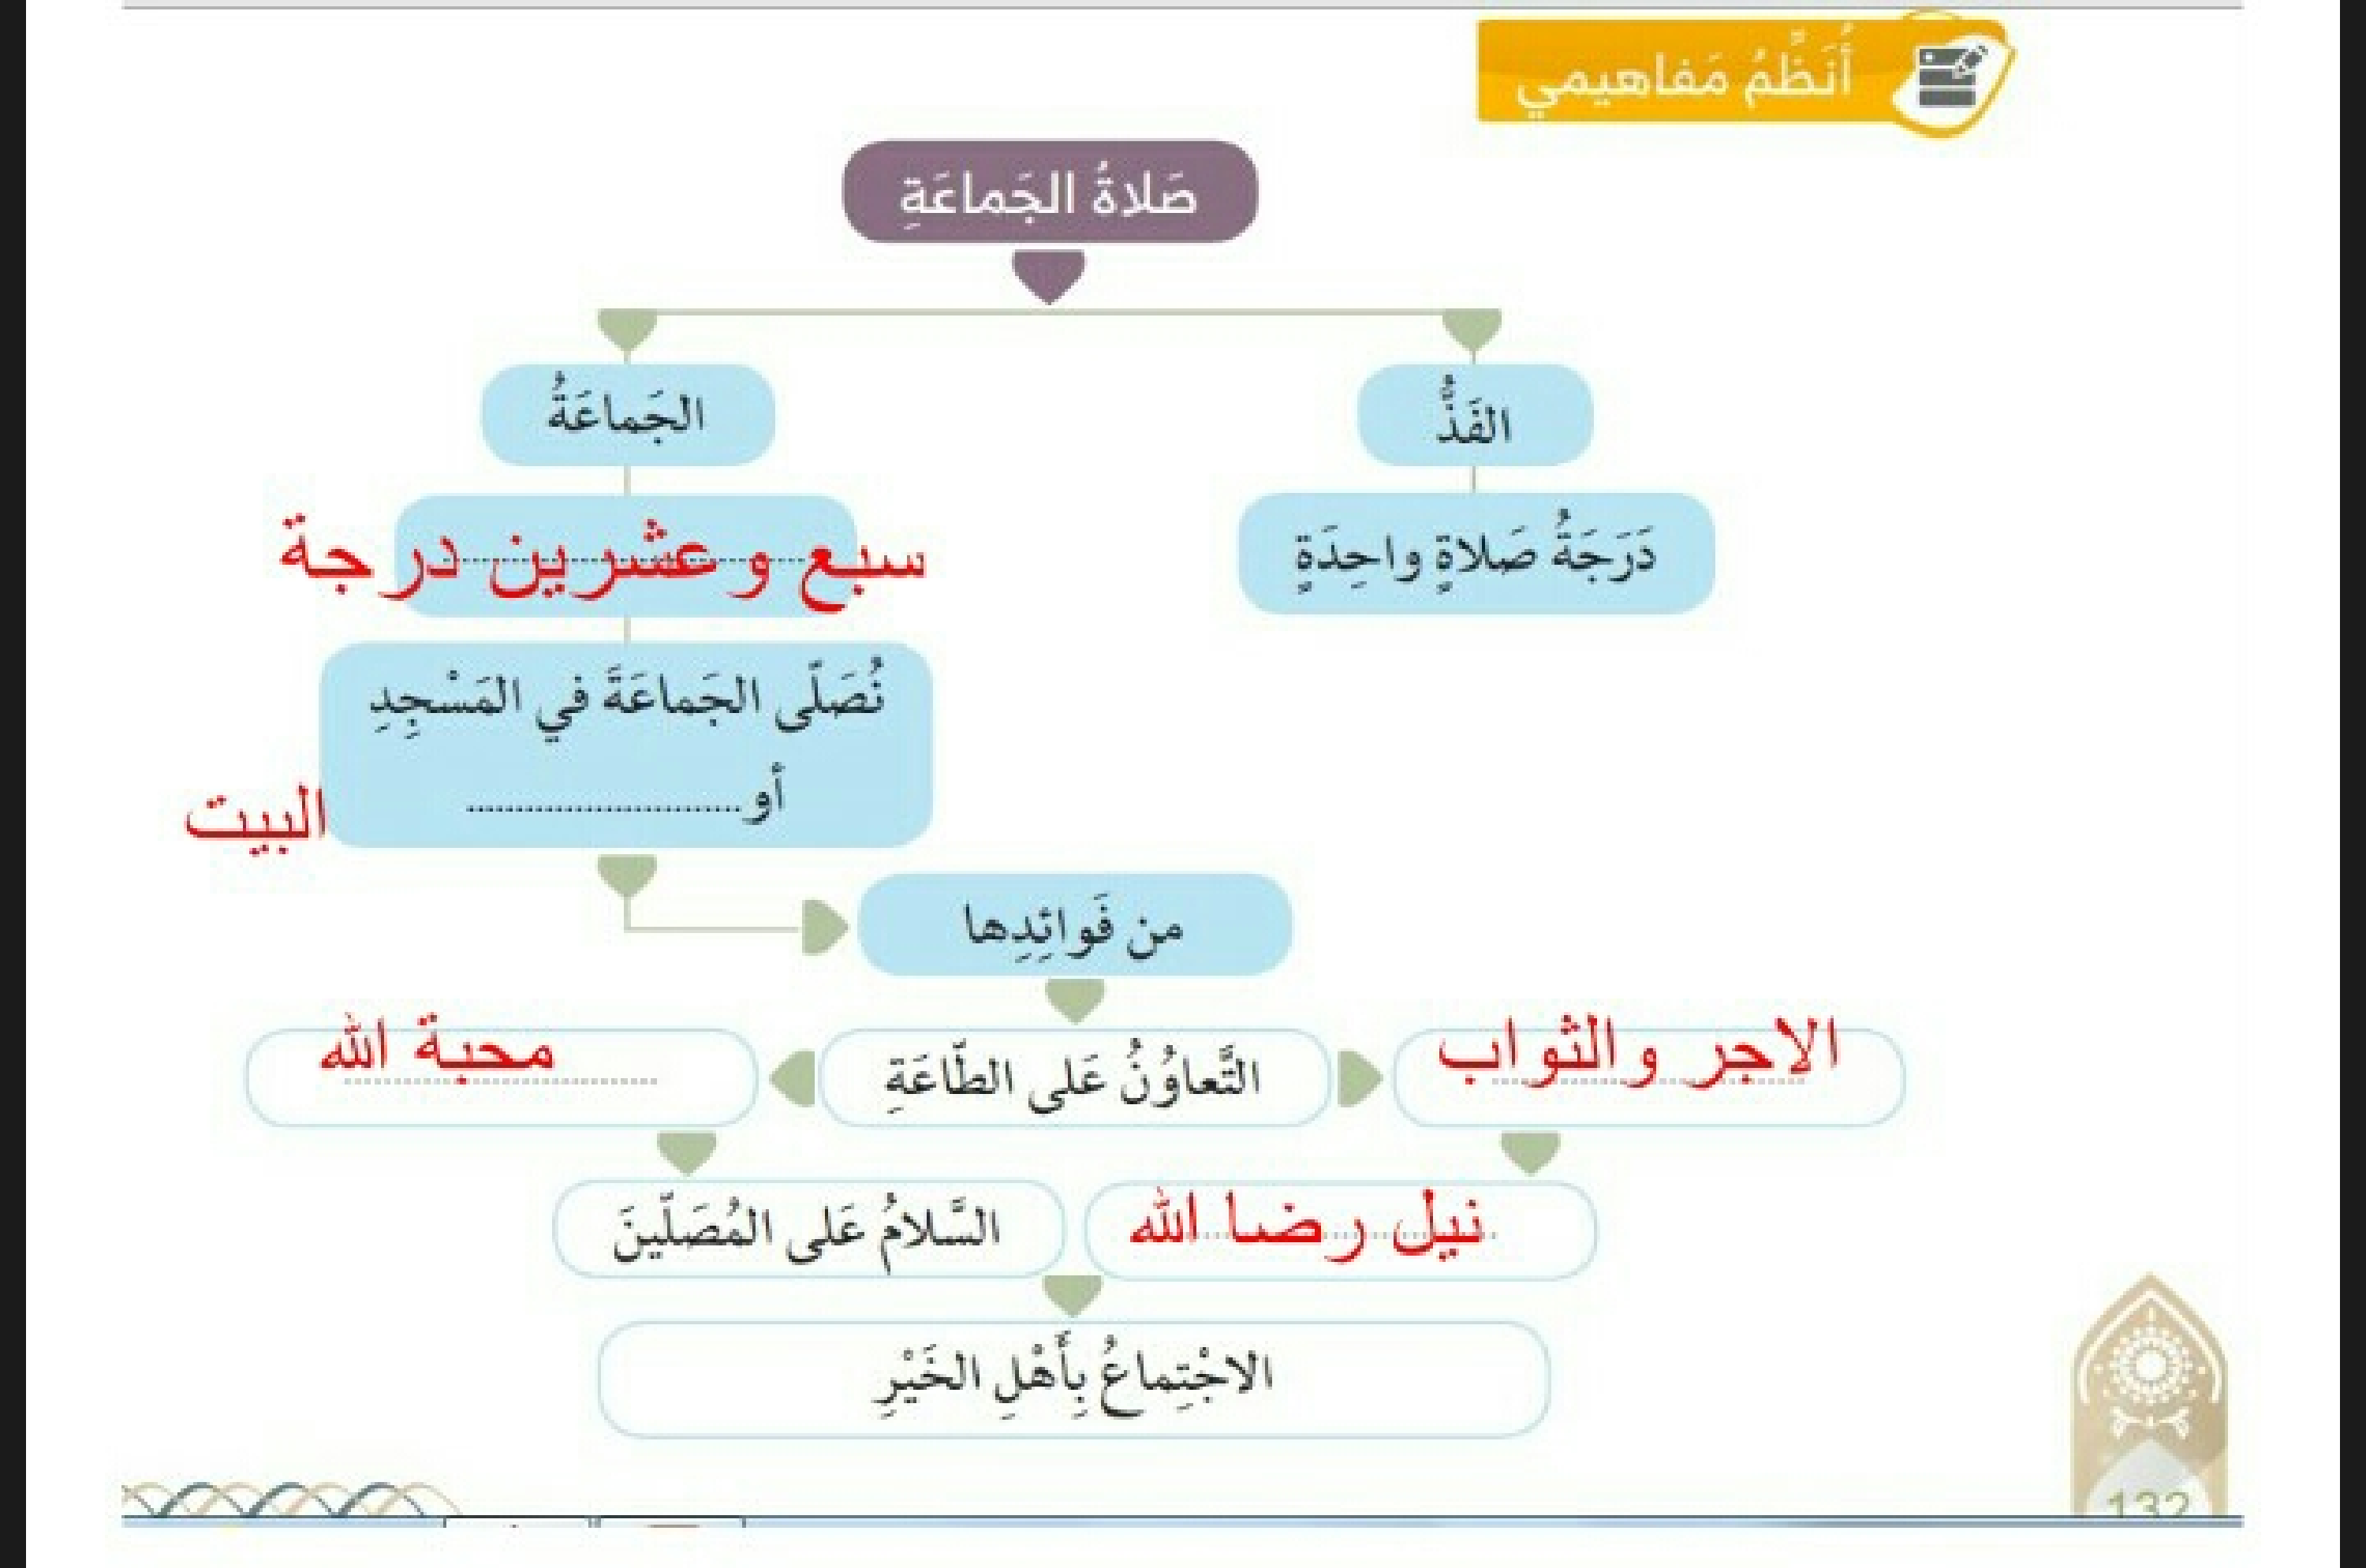 أُنَظِّمُ مَفاهيمي
صَلاةُ الجَماعَةِ
الفَذُّ
الجَماعَةُ
دَرَجَةُ صَلاةٍ واحِدَةٍ
سبع وعشرين درجة
نُصَلّى الجَماعَةَ في المَسْجِدِ
أو............................ البيت
من فَوائِدِها
الاجر والثواب
التَّعاوُنُ عَلى الطّاعَةِ
محبة الله
نيل رضا الله
السَّلامُ عَلى المُصَلّينَ
الاجْتِماعُ بِأَهْلِ الخَيْرِ
132